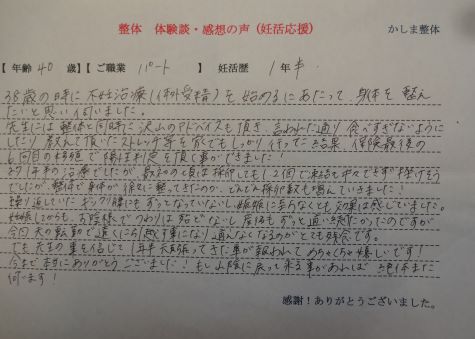 整体 体験談・感想の声（妊活応援） かしま整体
【 年齢 40 歳】【 ご職業 パート 】 妊活歴 1年半
38歳の時に不妊治療(体外受精)を始めるにあたって、身体を整え
たいと思い伺いました。
先生には整体と同時に沢山のアドバイスも頂き、言われた通り食べすぎないように
したり、教えて頂いたストレッチ等を家でもしっかり行った結果、保険最後の
6回目の移植で陽性判定を頂く事ができました!
約1年半の治療でしたが、最初の頃は採卵しても1、2個で凍結も中々できず
でしたが、整体で身体が徐々に整ってきたのか、どんどん採卵数も増えていきました!
繰り返していたギックリ腰にもずっとなっていないし、妊娠に至らなくとも効果は感じていました。
妊娠してからも、お陰様でつわりは殆どなし、
今回夫の転勤で遠くに引越す事になり通えなくなるのがとても残念です。
でも先生の事を信じて1年半頑張ってきた事が報われてめちゃくちゃ嬉しいです!
今まで本当にありがとうございました!もし山陰に戻って来る事があれば絶対また
伺います!
感謝！ありがとうございました。